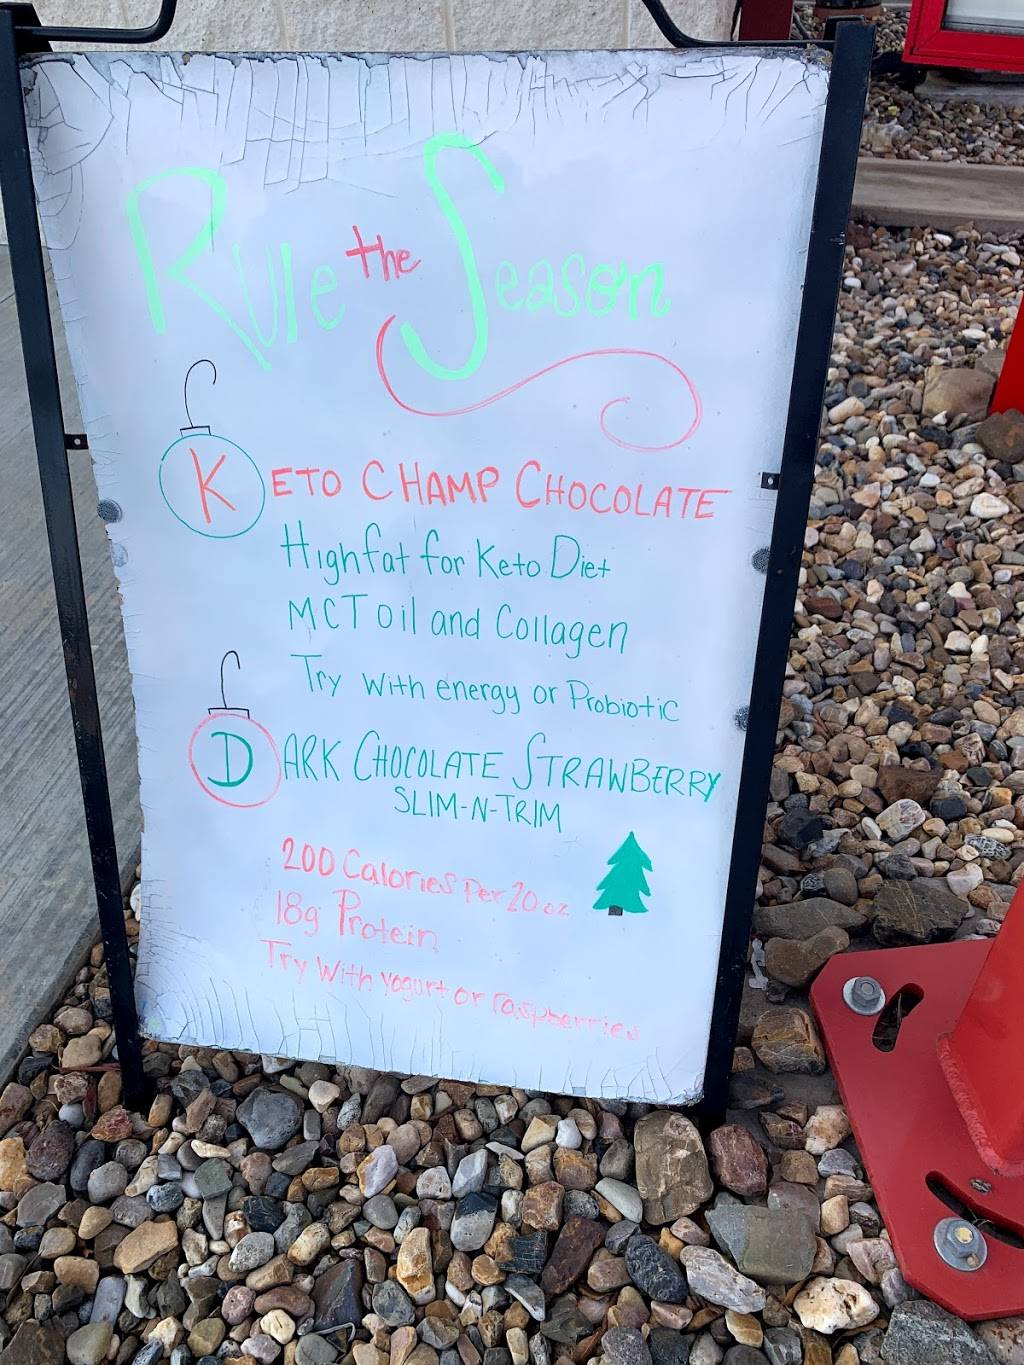 Rule the Season
KETO CHAMP CHOCOLATE
High fat for Keto Diet
MCT oil and Collagen
Try with energy or Probiotic
DARK CHOCOLATE STRAWBERRY
SLIM-N-TRIM
200 Calories Per 20 oz
18g Protein
Try With yogurt or raspberries